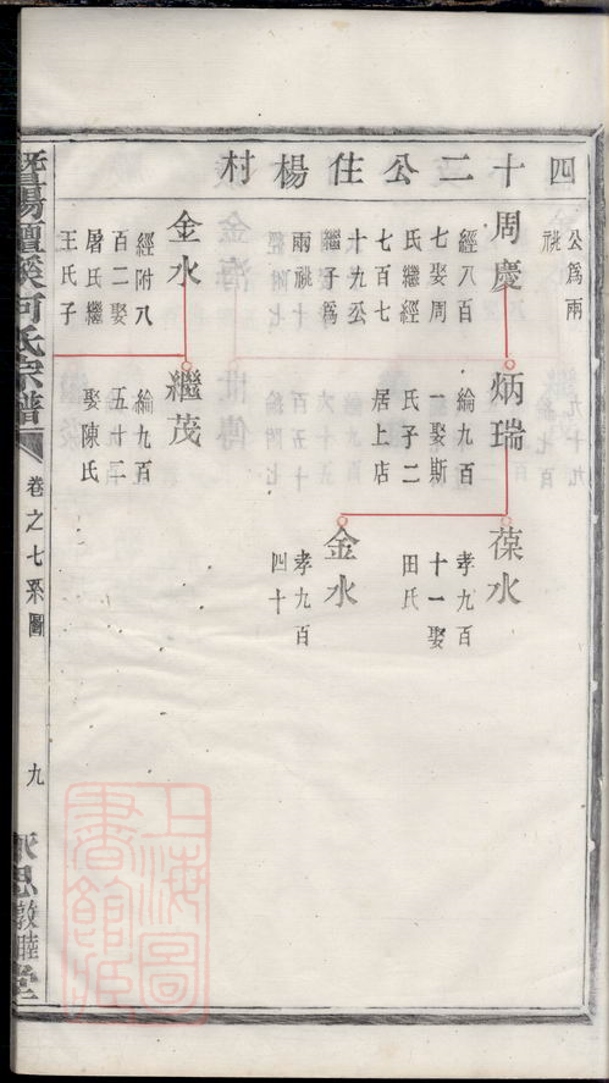 四十二公住楊村
公爲兩
祧
周慶
經八百
七娶周
氏繼經
七百七
十九公
繼子爲
兩祧
金水
經附八
百二娶
屠氏繼
王氏子
炳瑞
綸九百
一娶斯
氏子二
居上店
繼茂
綸九百
五十二
娶陳氏
葆水
孝九百
十一娶
田氏
金水
孝九百
四十
暨陽檀溪何氏宗譜
卷之七系圖
九
永思敦睦堂
上海圖
書館藏